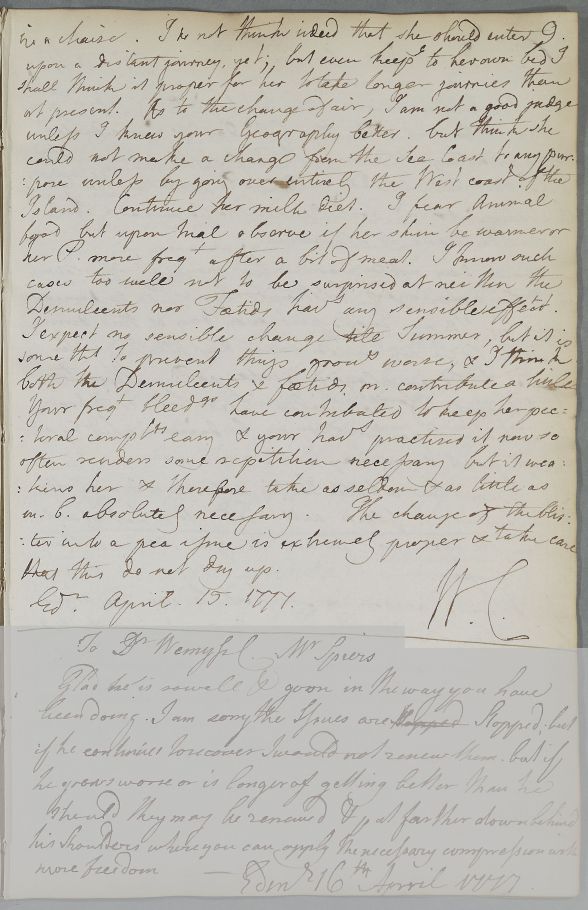 in a chaise. I do not think indeed that she should enter
upon a distant journey, yet; but even keepg to her own bed I
shall think it proper for her to take longer journies than
at present. As to the change of air, I am not a good judge
unless I knew your Geography better. but think she
could not make a change from the Sea Coast to any pur:
:pose unless by going over entirely the West coast of the
Island. Continue her milk diet. I fear Animal
food but upon trial observe if her skin be warmer or
her P. more freqt after a bit of meat. I know such
cases too well not to be surprised at neither the
Demulcents nor Fœtids havg any sensible effect.
I expect no sensible change till Summer, but it is
somethg to prevent things growg worse, & I think
both the Demulcents & fœtids contribute a little
Your freqt bleedgs have contributed to keep her pec:
:toral compts easy & your havg practised it now so
often renders some repetition necessary but it wea:
:kens her & therefore take as seldom & as little as
absolutely necessary. The change of the blis:
:ter into a pea issue is extremely proper & take care
that this do not dry up.
Edr. April. 15. 1777. W. C.
To Dr Wemyss C. Mr Spiers
Glad he is so well & go on in the way you have
been doing. I am sorry the Issues are stopped; but
if he continues to recover I would not renew them. but if
he grows worse or is longer of getting better than he
should they may be renewed & put farther down behind
his shoulders where you can apply the necessary compression with
more freedom — Edinr 16th April 1777